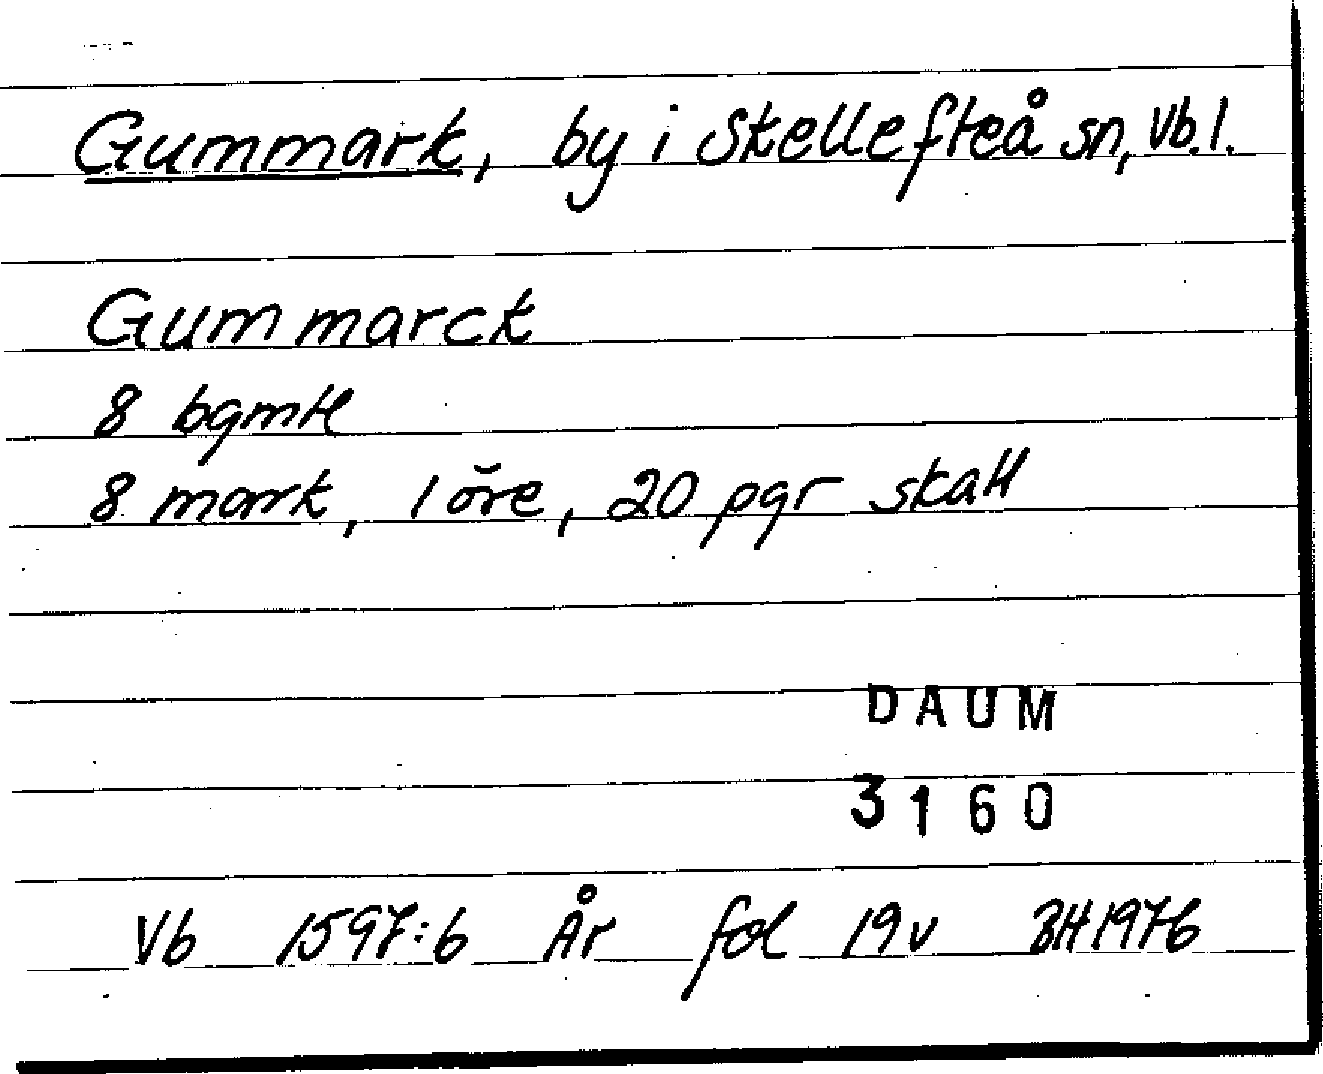 Gummark, by i Skellefteå sn, Vb.l.
Gummarck
8 bgmtl
8 mark, 1 öre, 20 pgr skatt
DAUM
3160
Vb 1597:6 År fol 19v BH 1976